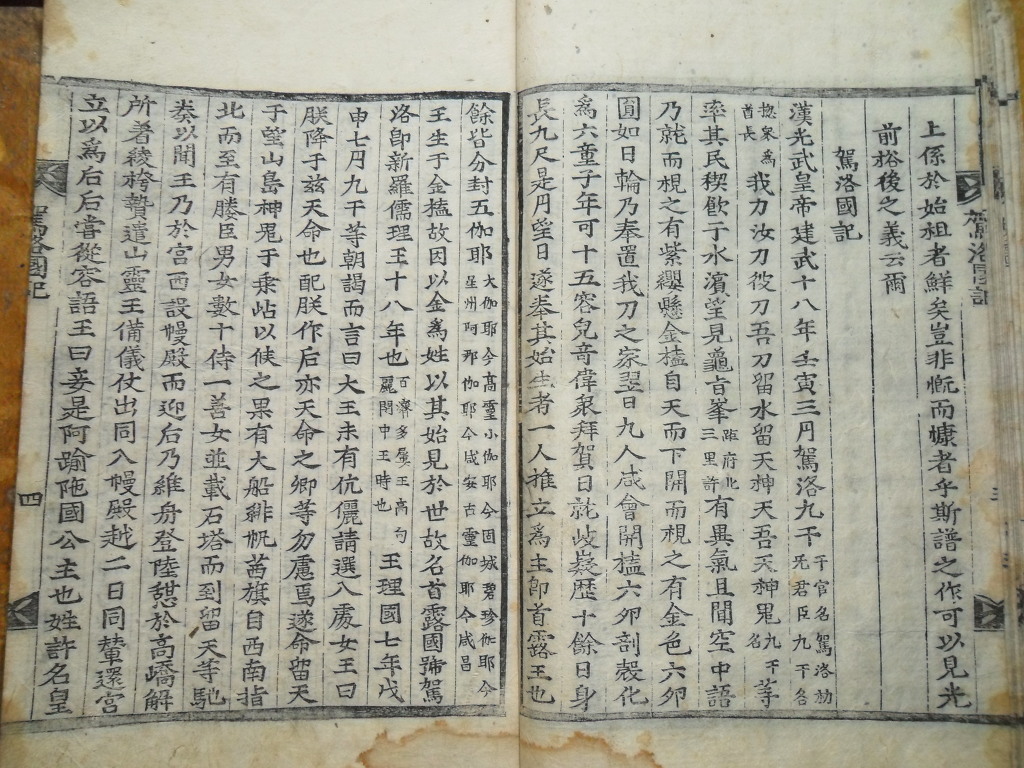 上係於始祖者鮮矣豈非慨而慊者乎斯譜之作可以見光
前裕後之義云爾
駕洛國記
漢光武皇帝建武十八年壬寅三月駕洛九干干官名駕洛初无君臣九干各
摠衆爲酋長我刀汝刀彼刀吾刀留水留天神天吾天神鬼九干名等
率其民稧飮于水濱望見龜旨峯距府北三里許有異氣且聞空中語
乃就而視之有紫纓懸金榼自天而下開而視之有金色六卵
圓如日輪乃奉置我刀之家翌日九人咸會開榼六卵剖殼化
爲六童子年可十五容皃奇偉衆拜賀日就岐嶷歷十餘日身
長九尺是月望日遂奉其始生者一人推立爲主卽首露王也
餘皆分封五伽耶大伽耶今高靈小伽耶今固城碧珍伽耶今星州阿那伽耶今咸安古靈伽耶今咸昌
王生于金榼故因以金爲姓以其始見於世故名首露國號駕
洛卽新羅儒理王十八年也百濟多婁王高句麗閔中王時也王理國七年戊
申七月九干等朝謁而言曰大王未有伉儷請選入處女王曰
朕降于玆天命也配朕作后亦天命之卿等勿慮焉遂命留天
于望山島神鬼于乘岾以候之果有大船緋帆茜旗自西南指
北而至有媵臣男女數十侍一善女並載石塔而到留天等馳
奏以聞王乃於宮西設幔殿而迎后乃維舟登陸憩於高嶠解
所著綾袴贄遣山靈王備儀仗出同入幔殿越二日同輦還宮
立以爲后后嘗從容語王曰妾是阿踰陁國公主也姓許名皇
駕洛國記
四